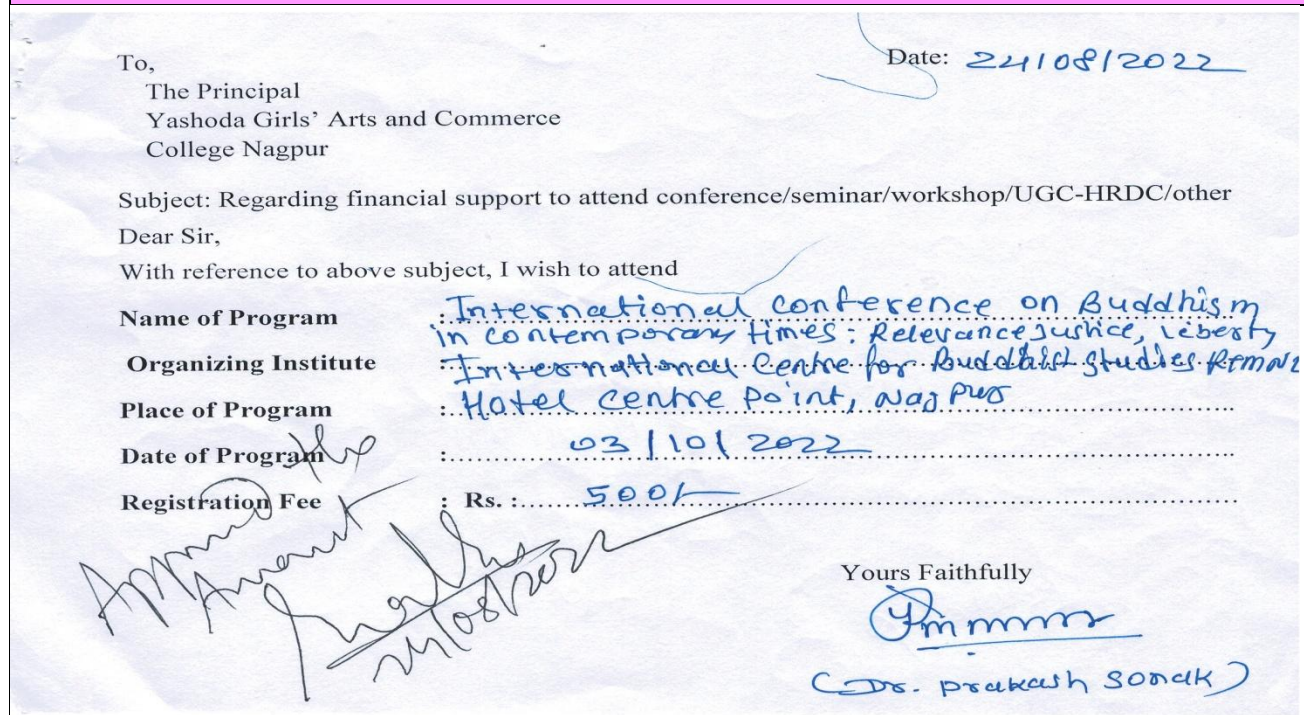 Date: 24/08/2022
To,
The Principal
Yashoda Girls' Arts and Commerce
College Nagpur
Subject: Regarding financial support to attend conference/seminar/workshop/UGC-HRDC/other
Dear Sir,
With reference to above subject, I wish to attend
Name of Program : International conference on Buddhism
in contemporary times: Relevance Justice, Liberty
Organizing Institute : International Centre for Buddhist Studies
Place of Program : Hotel Centre Point, Nagpur
Date of Program : 03/10/2022
Registration Fee : Rs. : 500/-
Approved the
Amount
24/08/2022
Yours Faithfully
(Dr. Prakash Sonak)